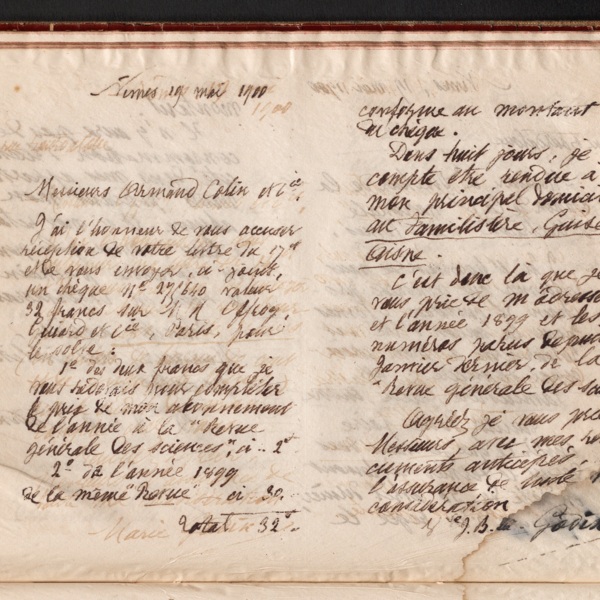 Nîmes 19 mai 1900
Messieurs Armand Colin et Cie.
J'ai l'honneur de vous accuser
réception de votre lettre du 17 ct
et de vous envoyer, ci-joint,
un chèque No 27640 valeur
32 francs sur
et Cie, Paris, pour
le solde:
1o des deux francs que je
vous devais pour compléter
le prix de mon abonnement
de l'année à la "Revue
générale des sciences", ci.. 2f
2o de l'année 1899
de la même "Revue" ci 30.
Total 32f
Marie
conforme au montant
du chèque.
Dans huit jours, je
compte être rendue à
mon principal domici
au Familistère, Guise
Aisne.
C'est donc là que je
vous prie de m'adresse
et l'année 1899 et les
numéros parus depuis
Janvier dernier, de la
"Revue générale des sci
Agréez je vous prie
Messieurs, avec mes re
ciments anticipés,
l'assurance de toute
considération
Vve J. B. A. Godin